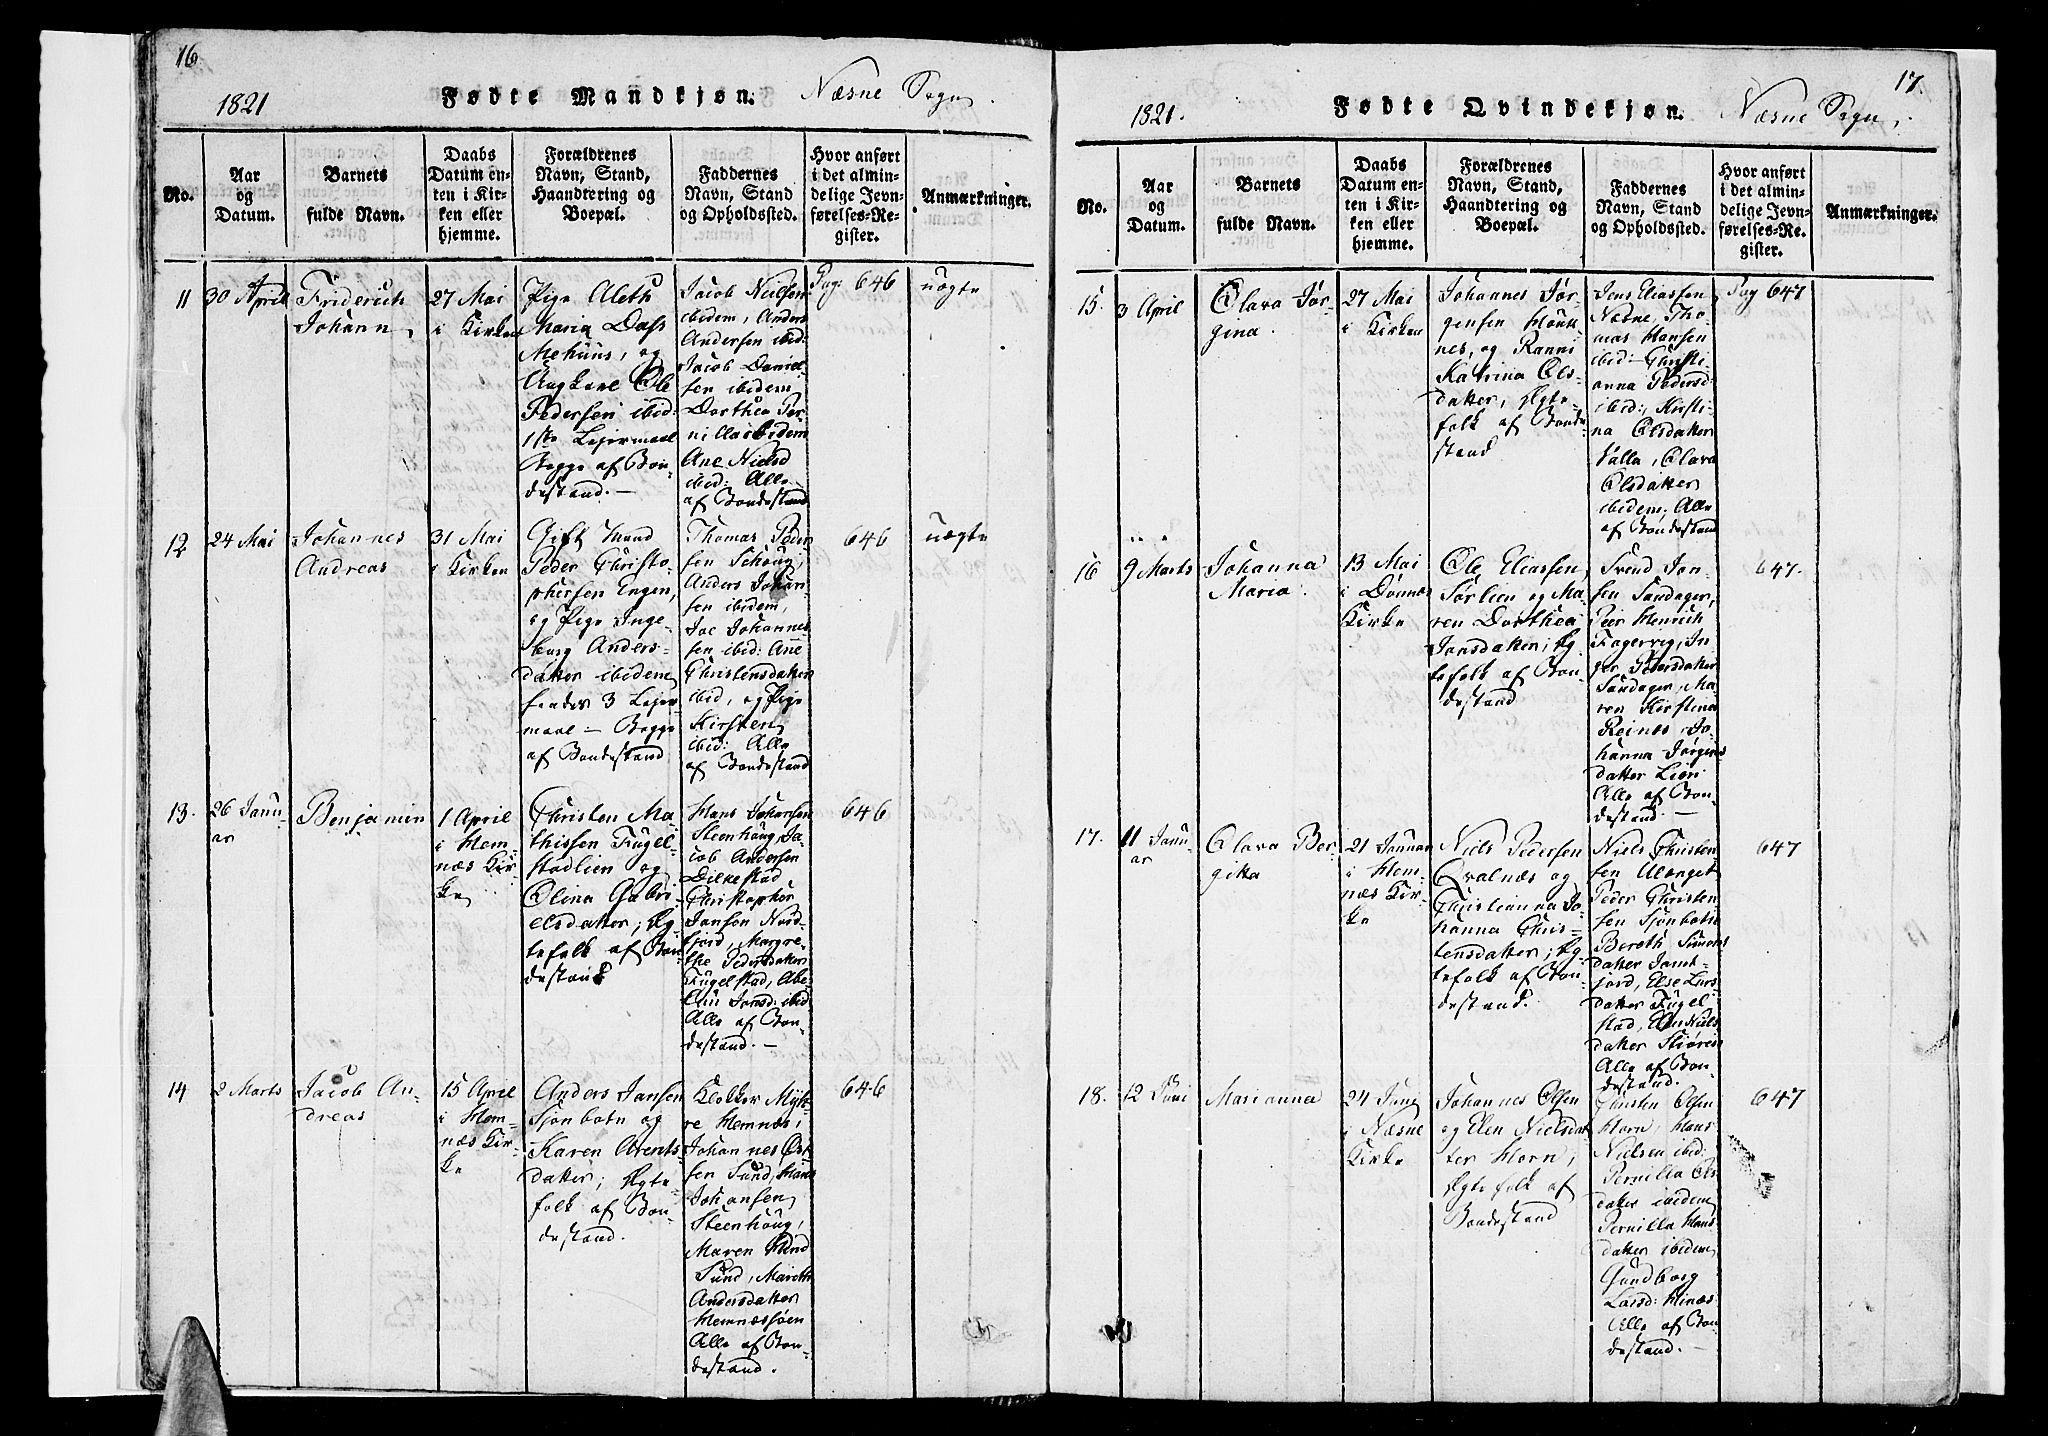 16
1821
Fødte Mandkjøn.
Næsne Sogn
No.
Aar
og
Datum.
Barnets
fulde Navn.
Daabs
Datum en-
ten i Kir-
ken eller
hjemme.
Forældrenes
Navn, Stand,
Haandtering og
Boepæl.
Faddernes
Navn, Stand
og Opholdssted.
Hvor anført
i det almin-
delige Jevn-
førelses-Re-
gister.
Anmærkninger.
11
30 April
Friderich
Johann
27 Mai
i Kirken
Pige Aleth
Maria Dass
Mehuus, og
Ungkarl Ole
Pedersen ibid:
1ste Lejermaal
Begge af Bon-
destand. —
Jacob Nielsen
ibidem, Anders
Andersen ibid:
Jacob Daniel-
sen ibidem,
Dorthea Per-
nilla ibidem
Ane Nielsd
ibid: Alle
af Bondestand
Pag: 646
uægte
12
24 Mai
Johannes
Andreas
31 Mai
i Kirken
Gift Mand
Peder Christo-
phersen Engen,
og Pige Inge-
borg Anders-
datter ibidem
hendes 3 Lejer-
maal — Begge
af Bondestand
Thomas Peder
sen Schoug,
Anders Johan
sen ibidem,
Joe Johannes
sen ibid: Ane
Christensdatter
ibid, og Pige
Kirsten
ibid: Alle
af Bondestand
646
uægte
13.
26 Janu-
ar
Benjamin
1 April
i Hem-
næs Kir-
ke
Christen Ma-
thissen Fugel-
stadlien og
Olina Gabri-
elsdatter, Eg-
tefolk af Bon-
destand
Hans Johansen
Steenhoug, Ja-
cob Andersen
Dilkestad
Christopher
Jansen Nord-
fjord, Margre-
the Pedersdatter
Fugelstad, Abe-
lou Jansd: ibid
Alle af Bon-
destand. —
646
14
2 Marts
Jacob An-
dreas
15 April
i Hem-
næs Kir-
ke
Anders Jansen
Sjonbotn og
Karen Arents-
datter, Egte-
folk af Bon-
destand.
Klokker
Hemnæs,
Johannes
sen Sund, Hans
Johansen
Steenhoug,
Maren
Sund, Mareth
Andersdatter
Hemnæssøen
Alle af Bon-
destand.
646
17.
1821.
Fødte Qvindekjøn.
Næsne Sogn,
No.
Aar
og
Datum.
Barnets
fulde Navn.
Daabs
Datum en-
ten i Kir-
ken eller
hjemme.
Forældrenes
Navn, Stand,
Haandtering og
Boepæl.
Faddernes
Navn, Stand
og Opholdssted.
Hvor anført
i det almin-
delige Jevn-
førelses-Re-
gister.
Anmærkninger.
15.
3 April
Olava Jør-
gina.
27 Mai
i Kirken
Johannes Jør-
gensen
nes, og Ranni
Katrina Ols-
datter, Egte-
folk af Bonde
stand
Jens Eliassen
Næsne, Tho-
mas Hansen
ibid: Christi-
anna Pedersd:
ibid:, Kirsti-
na Olsdatter
Valla, Olava
Olsdatter
ibidem, Alle
af Bondestand
Pag 647
16
9 Marts
Johanna
Maria.
13 Mai
i Dønnes
Kirke
Ole Eliassen
Sørlien og Ma-
ren Dorthea
Jonsdatter, Eg-
tefolk af Bon-
destand
Svend Jon-
sen Sandager,
Peer Henrich
Fagervig, In-
ger Pedersdatter
Sandager, Ma-
ren Kirstina
Reinæs, Jo-
hanna Jørgens-
datter
Alle af Bon-
destand. —
647.
17.
11 Janu-
ar
Olava Ber-
gitta
21 Januar
i Hem-
næs Kir-
ke
Niels Pedersen
Qvalnæs og
Christianna Jo-
hanna Chris-
tensdatter, Eg-
tefolk af Bon-
destand.
Niels Christen-
sen Ulænget
Peder Christen-
sen Sjonbotn
Bereth Simons
datter Jamt-
jord, Else Lars-
datter Fugel
stad, Elen Niels
datter
Alle af Bon-
destand.
647
18.
12 Juni
Marianna
24 Juni
i Næsne
Kirke
Johannes Olsen
og Elen Nielsdat-
ter Horn,
Egtefolk af
Bondestand
Christen Olsen
Horn, Hans
Nielsen ibid:
Pernilla Ols
datter ibidem
Pernilla Hans
datter ibidem
Gundborg
Larsd: Hinæs
Alle af Bon-
destand. —
647